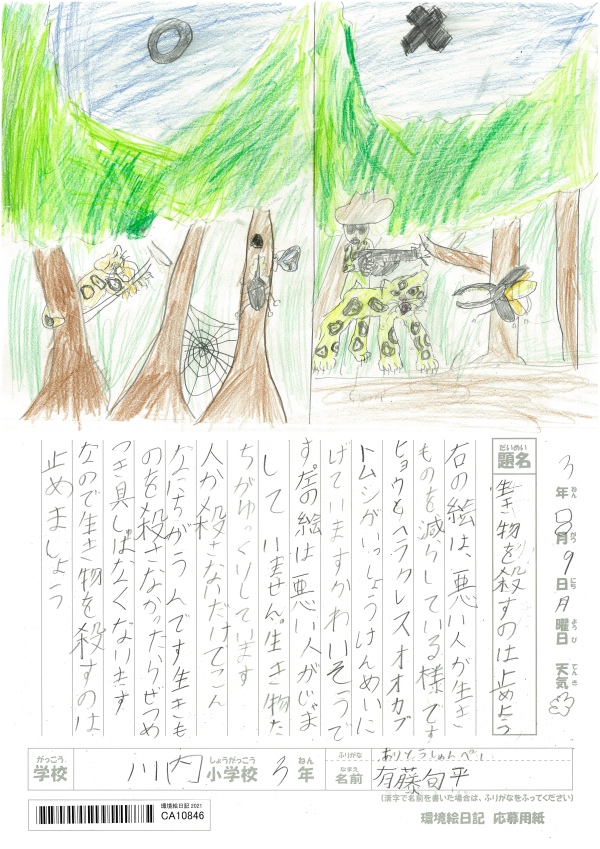 3年8月9日月曜日 天気
ねん がつ にち ようび てんき
だいめい
題名
生き物を殺すのは止めよう
右の絵は、悪い人が生き
ものを減らしている様です
ヒョウとヘラクレスオオカブ
トムシがいっしょうけんめいに
げていますかわいそうで
す。左の絵は悪い人がじゃま
していません。生き物た
ちがゆっくりしています
人が殺さないだけでこん
なにちがうんです生きも
のを殺さなかったらぜつめ
つき なくなります
なので生き物を殺すのは
止めましょう
がっこう しょうがっこう ねん
学校 川内小学校 3年
ふりがな ありとうしゅんぺい
なまえ
名前 有藤旬平
(漢字で名前を書いた場合は、ふりがなをふってください)
環境絵日記 2021
CA10846
環境絵日記 応募用紙